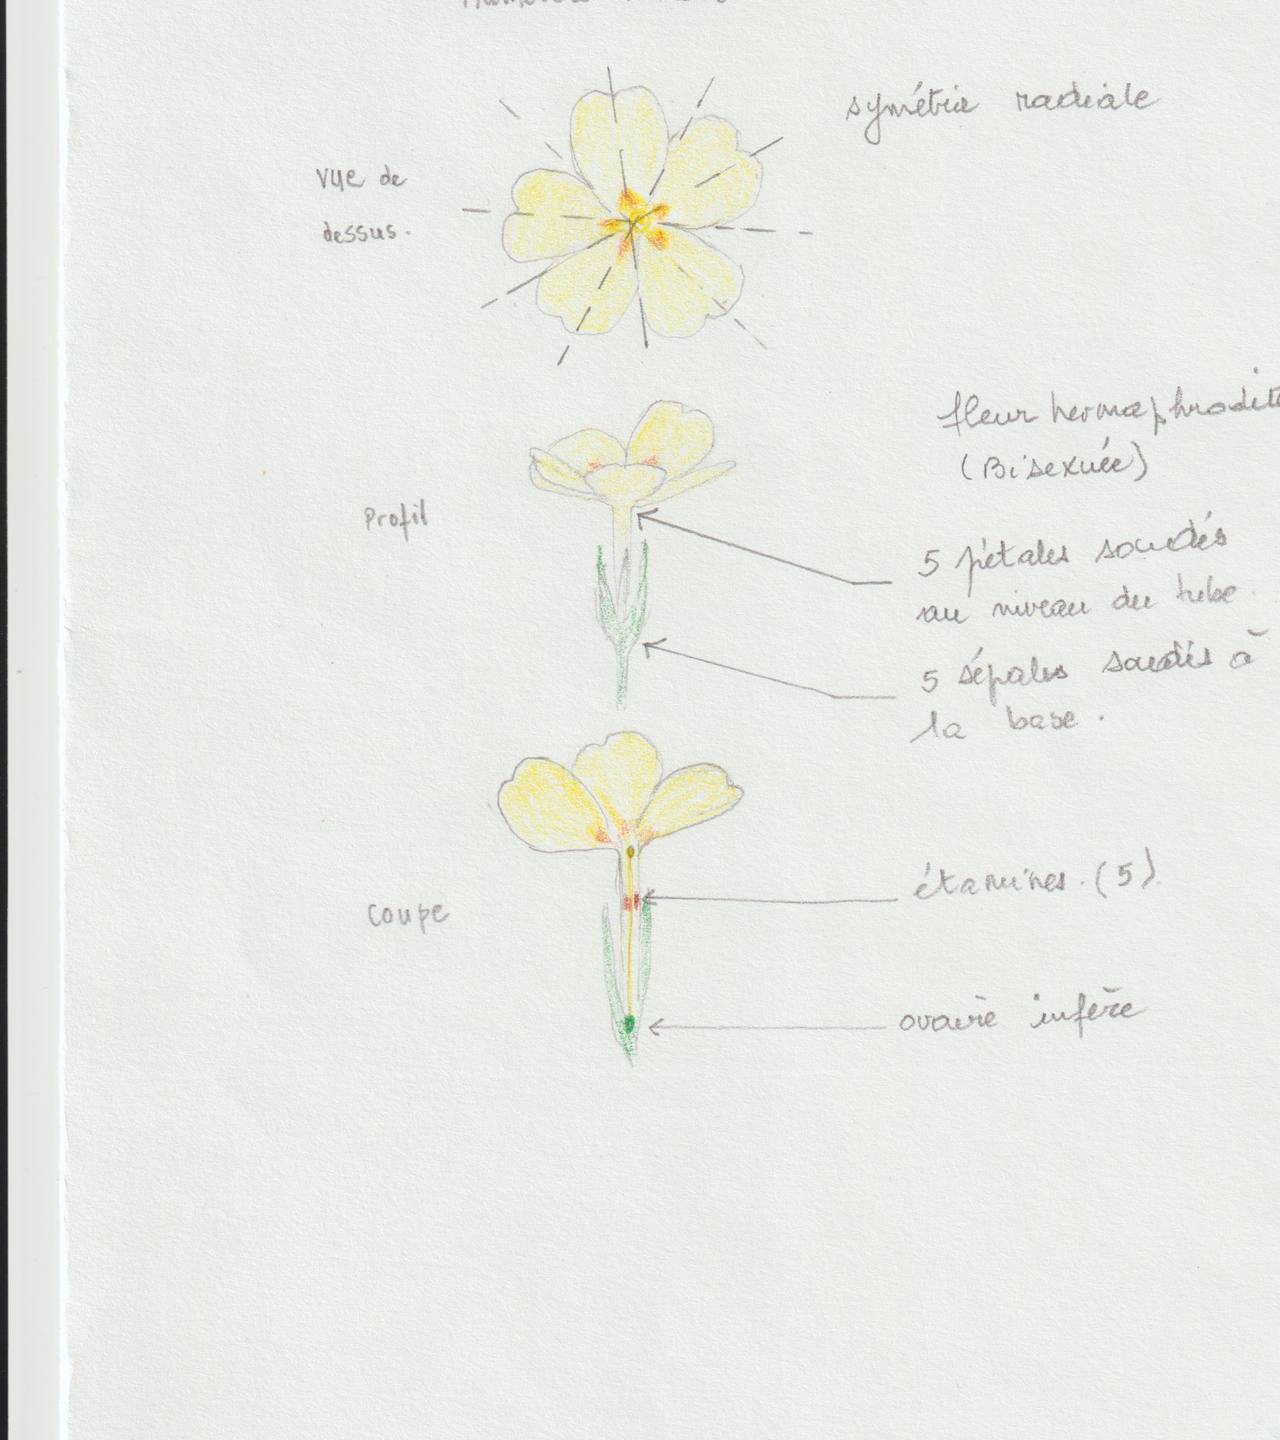 symétrie radiale
vue de
dessus.
fleur hermaphrodite
(Bisexuée)
Profil
5 pétales soudés
au niveau du tube.
5 sépales soudés à
la base.
étamines. (5)
coupe
ovaire infère